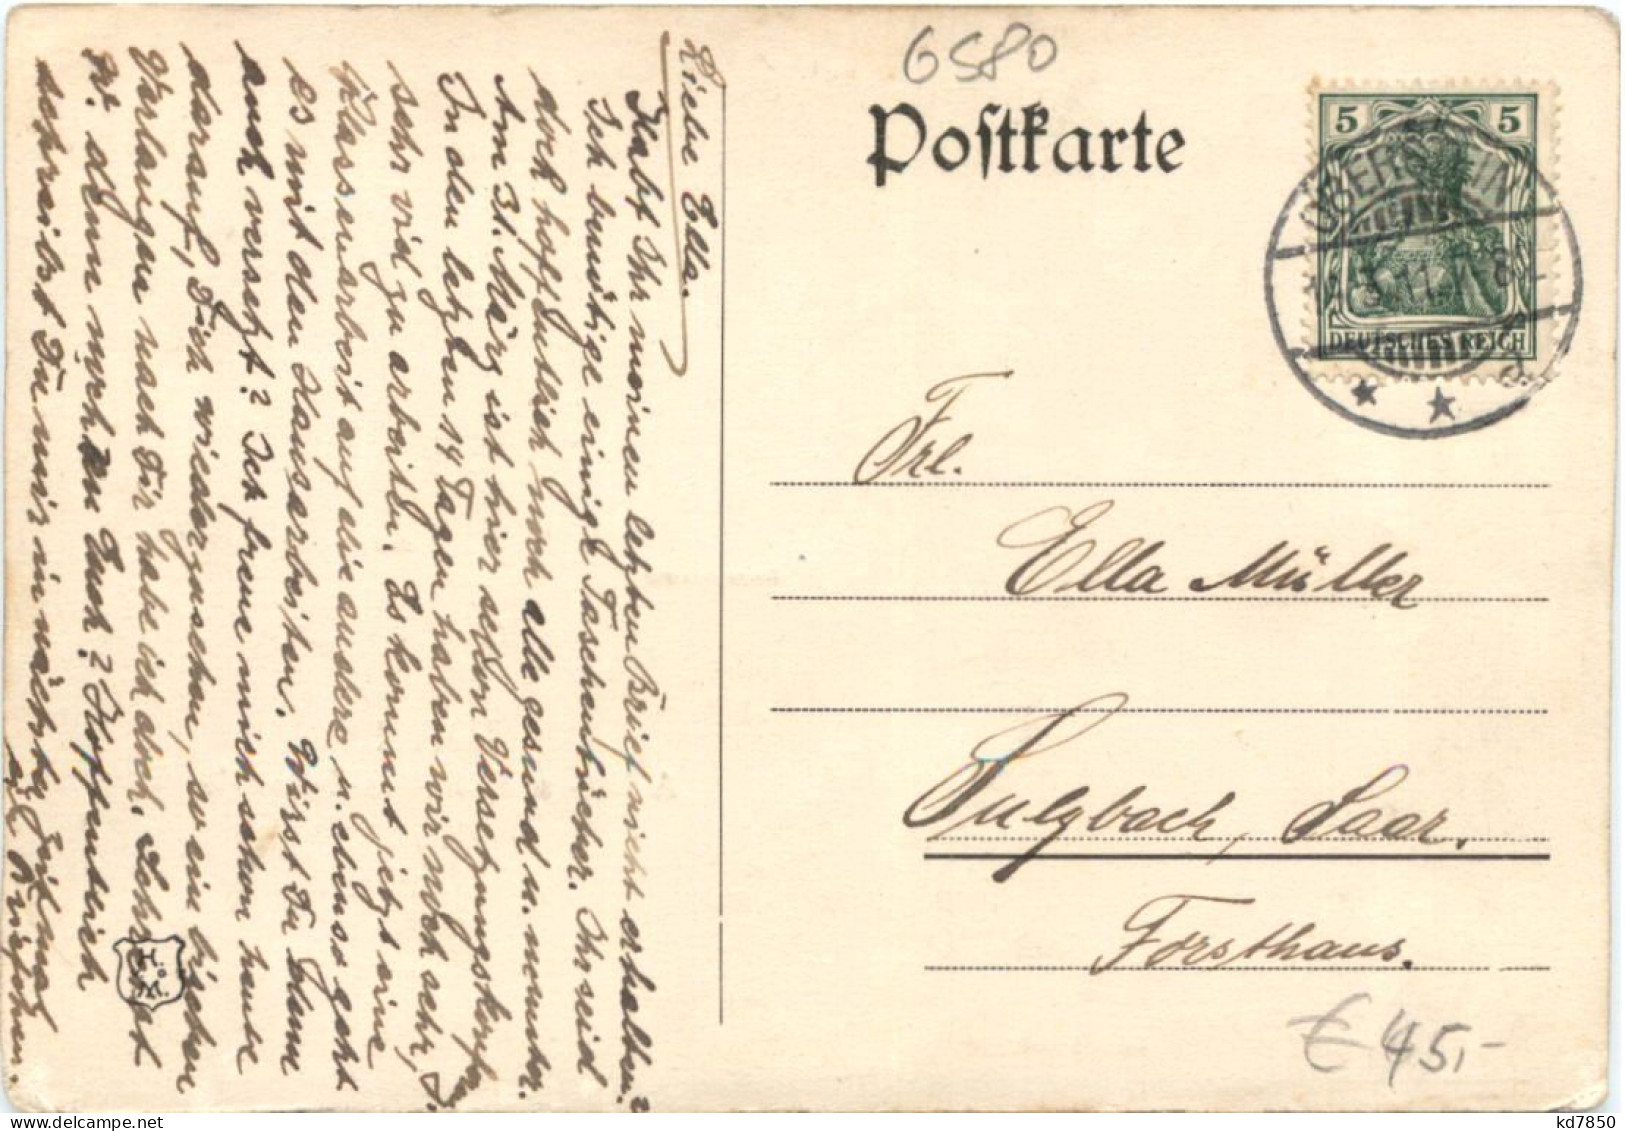 6580
Postkarte
5 5
OBERSTEIN
DEUTSCHES REICH
Frl.
Ella Müller
Sulzbach, Saar.
Forsthaus.
€ 45,-
Liebe Ella.
Habt Ihr meinen letzten Brief nicht erhalten?
Ich benötige einige Taschentücher. Ihr seid
doch hoffentlich noch alle gesund u. munter.
Am 31. März ist hier schon
In den letzten 14 Tagen haben wir noch sehr,
sehr viel zu arbeiten. Es kommt jetzt eine
Klassenarbeit auf die andere u. ebenso geht
es mit den Hausarbeiten. Wirst Du denn
auch versetzt? Ich freue mich schon heute
darauf, Dich wiederzusehen, so ein bischen
Verlangen nach Dir habe ich doch.
W. denn noch Hoffentlich
schreibst Du mir in nächster Zeit mal
H. & M.
kd7850